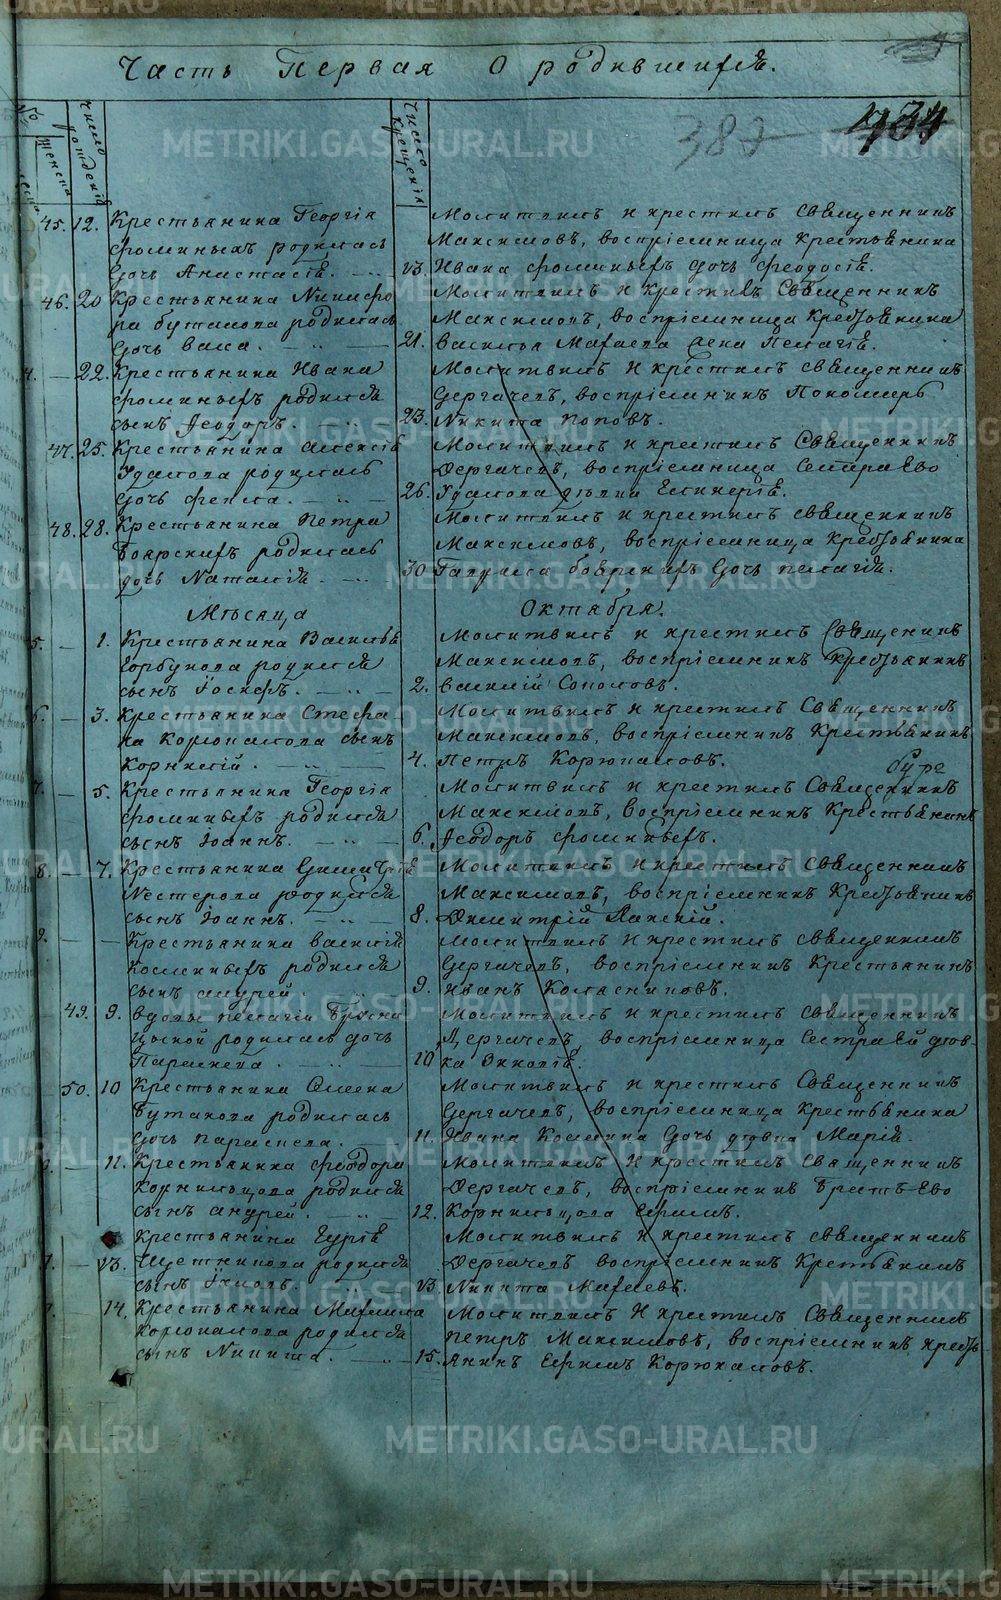 Часть Первая О родившихся.
382
434
Число рождения
Число крещения
45. 12. Крестьянина Георгія
Фоминыхъ родилась
дочь Анастасія.
Молитвилъ и крестилъ Священникъ
Максимовъ, воспріемница Крестьянина
13. Ивана Фоминыхъ дочь Феодосія.
46. 20 Крестьянина Никифо
ра Бутакова родилась
дочь
Молитвилъ и крестилъ Священникъ
Максимовъ, воспріемница Крестьянина
21. Василья жена Пелагія.
22. Крестьянина Ивана
Фоминыхъ родился
сынъ Ѳеодоръ.
Молитвилъ и крестилъ священникъ
Дергачевъ, воспріемникъ Пономарь
23. Никита Поповъ.
47. 25. Крестьянина Алексія
родилась
дочь Фекла.
Молитвилъ и крестилъ Священникъ
Дергачевъ, воспріемница Сестра Ево
26.
48. 28. Крестьянина Петра
Боярскихъ родилась
дочь Наталія.
Молитвилъ и крестилъ священникъ
Максимовъ, воспріемница Крестьянина
30 Гаврила Боярскихъ дочь Пелагія.
Мѣсяца Октября.
5. 1. Крестьянина Василья
Горбунова родился
сынъ Іосифъ.
Молитвилъ и крестилъ Священникъ
Максимовъ, воспріемникъ крестьянинъ
2. Василій Соколовъ.
6. 3. Крестьянина Стефа
на Корюкалова сынъ
Корнилій.
Молитвилъ и крестилъ Священникъ
Максимовъ, воспріемникъ Крестьянинъ
4. Петръ Корюкаловъ.
7. 5. Крестьянина Георгія
Фоминыхъ родился
сынъ Іоаннъ.
Молитвилъ и крестилъ Священникъ
Максимовъ, Воспріемникъ Крестьянинъ
6. Ѳеодоръ Фоминыхъ.
8. 7. Крестьянина
Нестерова родился
сынъ Іоаннъ.
Молитвилъ и крестилъ Священникъ
Максимовъ, воспріемникъ Крестьянинъ
8. Димитрій
9. Крестьянина Василія
родился
сынъ Андрей
Молитвилъ и крестилъ священникъ
Дергачевъ, воспріемникъ Крестьянинъ
9. Иванъ Колясниковъ.
49. 9. Вдовы Пелагіи
родилась дочь
Параскева.
Молитвилъ и крестилъ Священникъ
Дергачевъ, воспріемница Сестра Ей
10
50. 10 Крестьянина
Бутакова родилась
дочь Параскева.
Молитвилъ и крестилъ Священникъ
Дергачевъ, воспріемница Крестьянина
11. Ивана дочь Марія.
11. Крестьянина Феодора
Корнильцова родился
сынъ Андрей.
Молитвилъ и крестилъ Священникъ
Дергачевъ, воспріемникъ Братъ Ево
12. Корнильцова
Крестьянина Гурія
13. родился
сынъ
Молитвилъ и крестилъ священникъ
Дергачевъ воспріемникъ Крестьянинъ
13. Никита
14. Крестьянина
Корюкалова родился
сынъ Никита.
Молитвилъ и крестилъ Священникъ
Петръ Максимовъ, воспріемникъ кресть
15. янинъ Ефимъ Корюкаловъ.
METRIKI.GASO-URAL.RU